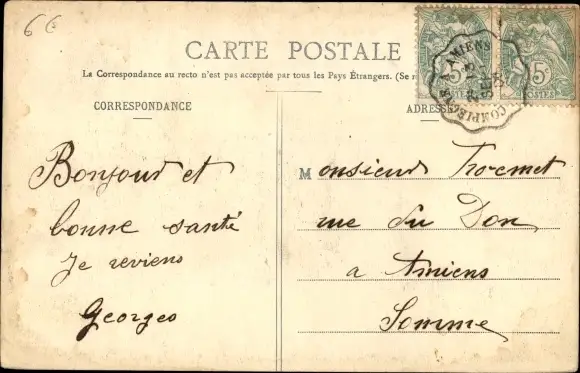 6 E
CARTE POSTALE
La Correspondance au recto n'est pas acceptée par tous les Pays Étrangers. (Se
CORRESPONDANCE
ADRESSE
5c
POSTES
COMPIÈGNE A AMIENS
Bonjour et
bonne santé
Je reviens
Georges
Monsieur
rue du Don
a Amiens
Somme